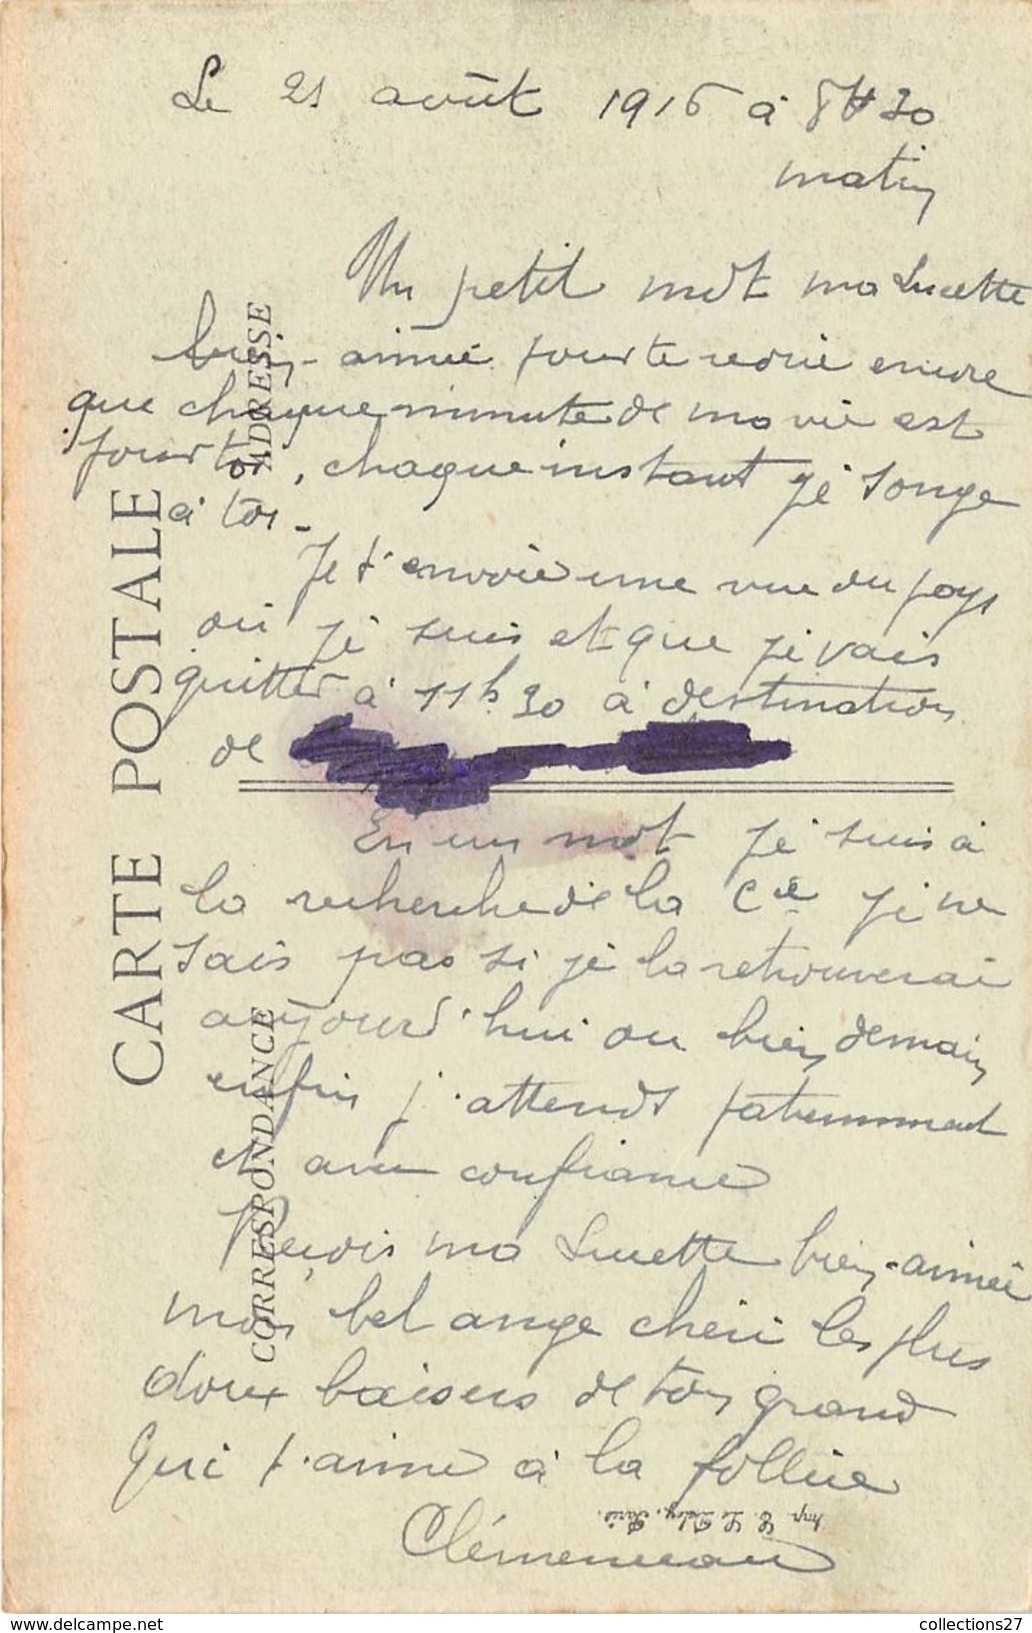 Le 21 août 1916 à 8H30
matin
Un petit mot ma Lucette
bien-aimée pour te redire encore
que chaque minute de ma vie est
pour toi, chaque instant je songe
à toi -
Je t'envoie une vue du pays
où je suis et que je vais
quitter à 11h30 à destination
de
En un mot je suis à
la recherche de la Cie je ne
sais pas si je la retrouverai
aujourd'hui ou bien demain
enfin j'attends patiemment
et avec confiance
Reçois ma Lucette bien-aimée
mon bel ange chéri les plus
doux baisers de ton grand
qui t'aime à la follie
Clémenceau
CARTE POSTALE
CORRESPONDANCE
ADRESSE
Imp. E. Le Deley, Paris.
collections27